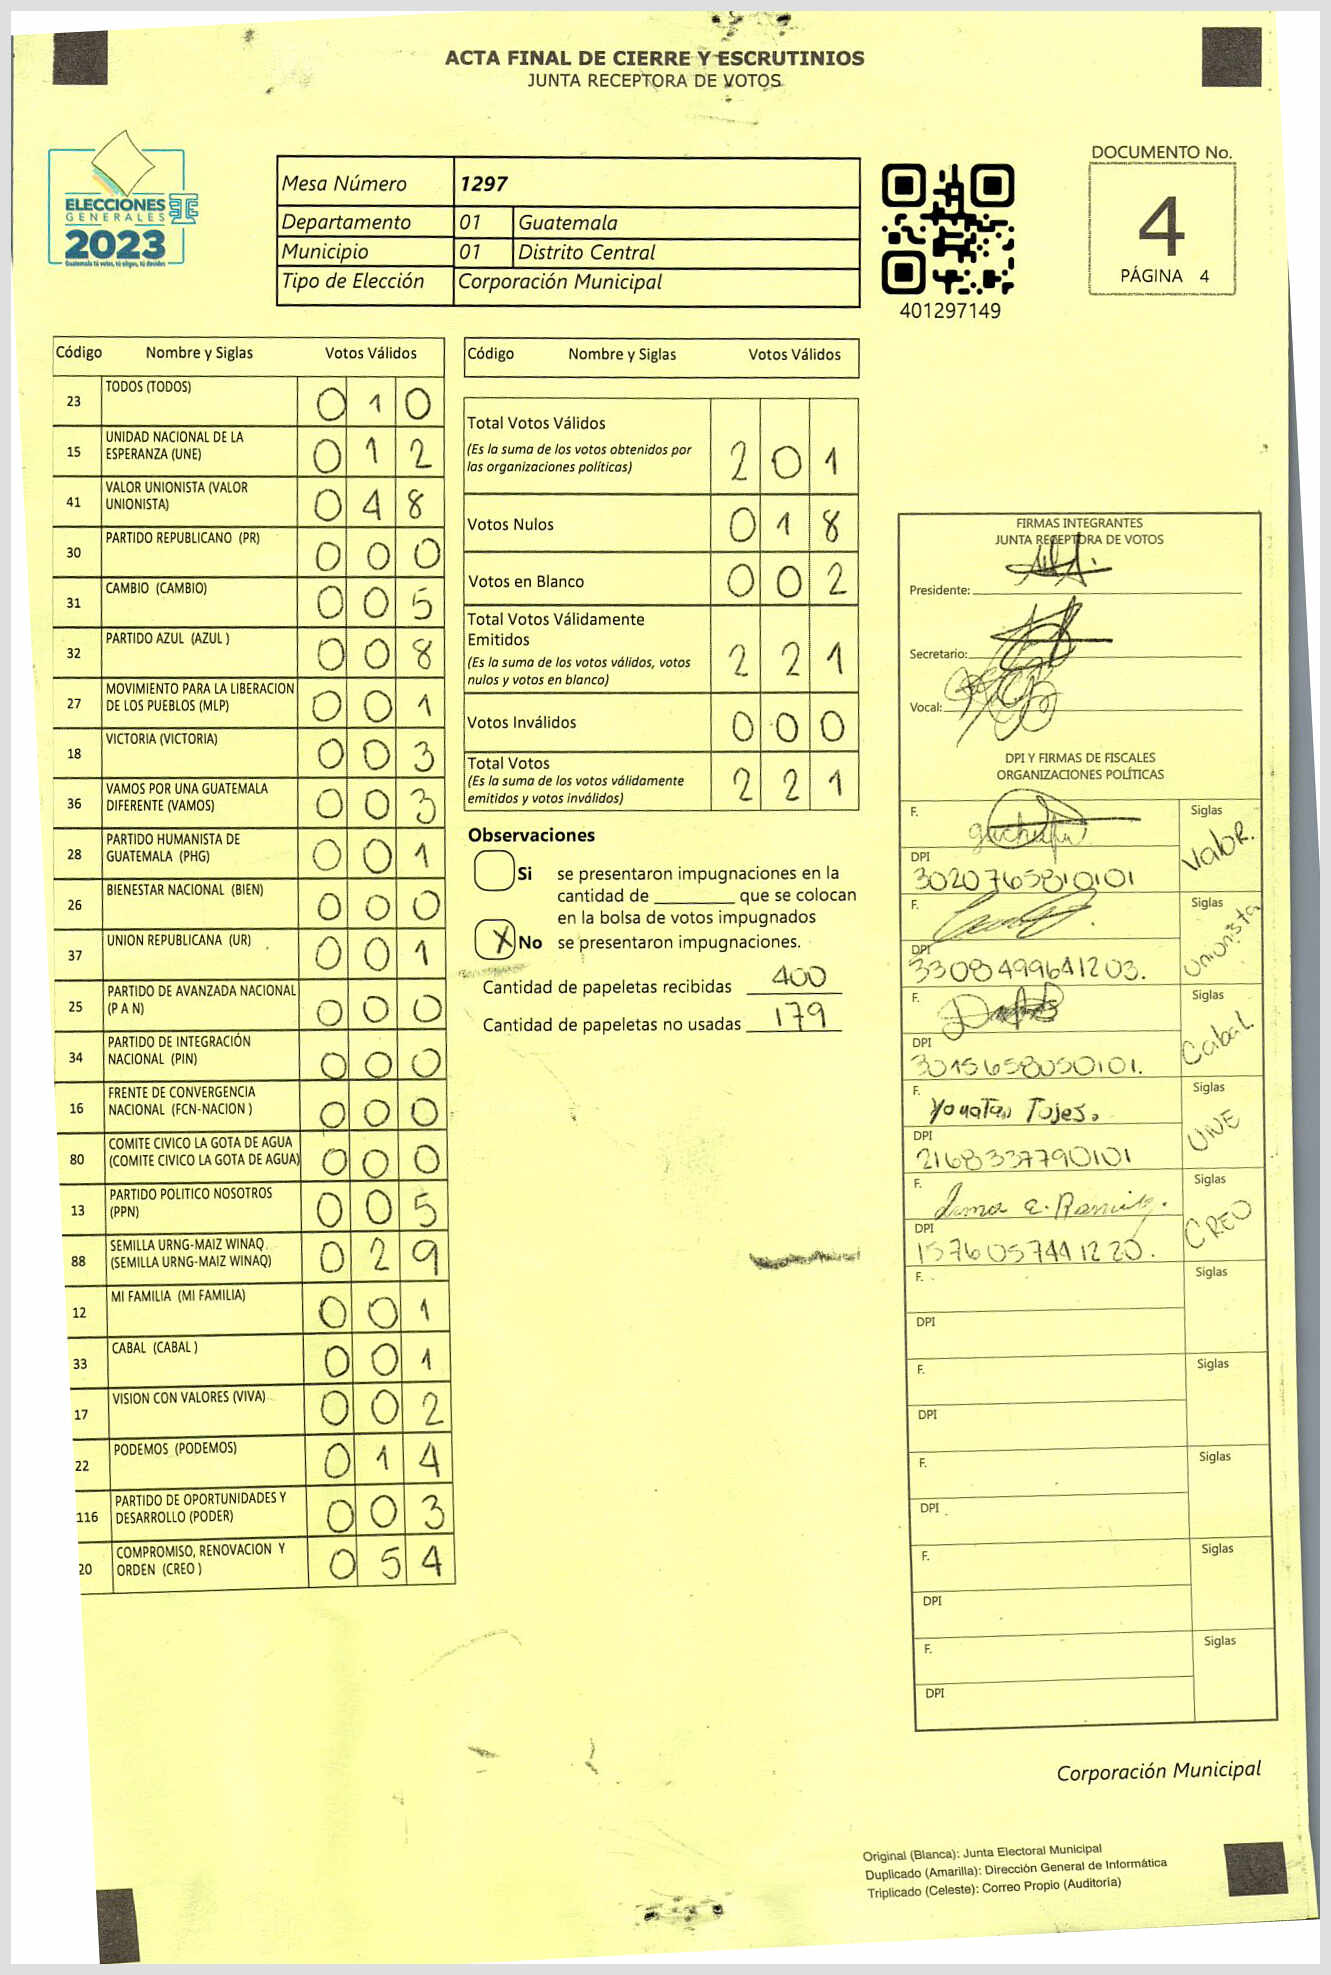 ACTA FINAL DE CIERRE Y ESCRUTINIOS
JUNTA RECEPTORA DE VOTOS
ELECCIONES
GENERALES
2023
Guatemala tú votas, tú eliges, tú decides
Mesa Número 1297
Departamento 01 Guatemala
Municipio 01 Distrito Central
Tipo de Elección Corporación Municipal
401297149
DOCUMENTO No.
4
PÁGINA 4
Código Nombre y Siglas Votos Válidos
23 TODOS (TODOS) 0 1 0
15 UNIDAD NACIONAL DE LA
ESPERANZA (UNE) 0 1 2
41 VALOR UNIONISTA (VALOR
UNIONISTA) 0 4 8
30 PARTIDO REPUBLICANO (PR) 0 0 0
31 CAMBIO (CAMBIO) 0 0 5
32 PARTIDO AZUL (AZUL ) 0 0 8
27 MOVIMIENTO PARA LA LIBERACION
DE LOS PUEBLOS (MLP) 0 0 1
18 VICTORIA (VICTORIA) 0 0 3
36 VAMOS POR UNA GUATEMALA
DIFERENTE (VAMOS) 0 0 3
28 PARTIDO HUMANISTA DE
GUATEMALA (PHG) 0 0 1
26 BIENESTAR NACIONAL (BIEN) 0 0 0
37 UNION REPUBLICANA (UR) 0 0 1
25 PARTIDO DE AVANZADA NACIONAL
(P A N) 0 0 0
34 PARTIDO DE INTEGRACIÓN
NACIONAL (PIN) 0 0 0
16 FRENTE DE CONVERGENCIA
NACIONAL (FCN-NACION ) 0 0 0
80 COMITE CIVICO LA GOTA DE AGUA
(COMITE CIVICO LA GOTA DE AGUA) 0 0 0
13 PARTIDO POLITICO NOSOTROS
(PPN) 0 0 5
88 SEMILLA URNG-MAIZ WINAQ
(SEMILLA URNG-MAIZ WINAQ) 0 2 9
12 MI FAMILIA (MI FAMILIA) 0 0 1
33 CABAL (CABAL ) 0 0 1
17 VISION CON VALORES (VIVA) 0 0 2
22 PODEMOS (PODEMOS) 0 1 4
116 PARTIDO DE OPORTUNIDADES Y
DESARROLLO (PODER) 0 0 3
20 COMPROMISO, RENOVACION Y
ORDEN (CREO ) 0 5 4
Código Nombre y Siglas Votos Válidos
Total Votos Válidos
(Es la suma de los votos obtenidos por
las organizaciones políticas) 2 0 1
Votos Nulos 0 1 8
Votos en Blanco 0 0 2
Total Votos Válidamente
Emitidos
(Es la suma de los votos válidos, votos
nulos y votos en blanco) 2 2 1
Votos Inválidos 0 0 0
Total Votos
(Es la suma de los votos válidamente
emitidos y votos inválidos) 2 2 1
Observaciones
Si se presentaron impugnaciones en la
cantidad de ________ que se colocan
en la bolsa de votos impugnados
X No se presentaron impugnaciones.
Cantidad de papeletas recibidas 400
Cantidad de papeletas no usadas 179
FIRMAS INTEGRANTES
JUNTA RECEPTORA DE VOTOS
Presidente:
Secretario:
Vocal:
DPI Y FIRMAS DE FISCALES
ORGANIZACIONES POLÍTICAS
F. Siglas Valor.
DPI
3020765810101
F. Siglas Unionista
DPI
3308499641203.
F. Siglas Cabal
DPI
3015658050101.
F. Yonatan Tojes. Siglas UNE
DPI
2168337790101
F. Irma E. Ramirez. Siglas CREO
DPI
1576057441220.
F. Siglas
DPI
F. Siglas
DPI
F. Siglas
DPI
F. Siglas
DPI
F. Siglas
DPI
Corporación Municipal
Original (Blanca): Junta Electoral Municipal
Duplicado (Amarilla): Dirección General de Informática
Triplicado (Celeste): Correo Propio (Auditoría)